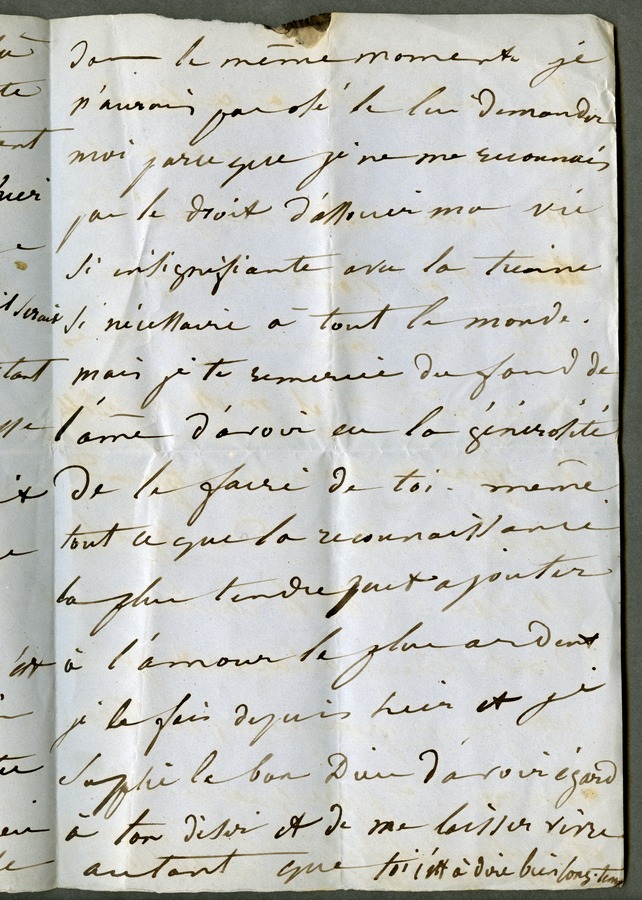 dans le même moment je
n'aurais pas osé te le demander
moi parce que je ne me reconnais
pas le droit d'associer ma vie
si insignifiante avec la tienne
si nécessaire à tout le monde.
mais je te remercie du fond de
l'âme d'avoir eu la générosité
de le faire de toi-même
tout ce que la reconnaissance
la plus tendre peut ajouter
à l'amour le plus ardent
je le fais depuis hier et je
supplie le bon Dieu d'avoir égard
à ton désir et de me laisser vivre
autant que toi c'est à dire bien long-temps